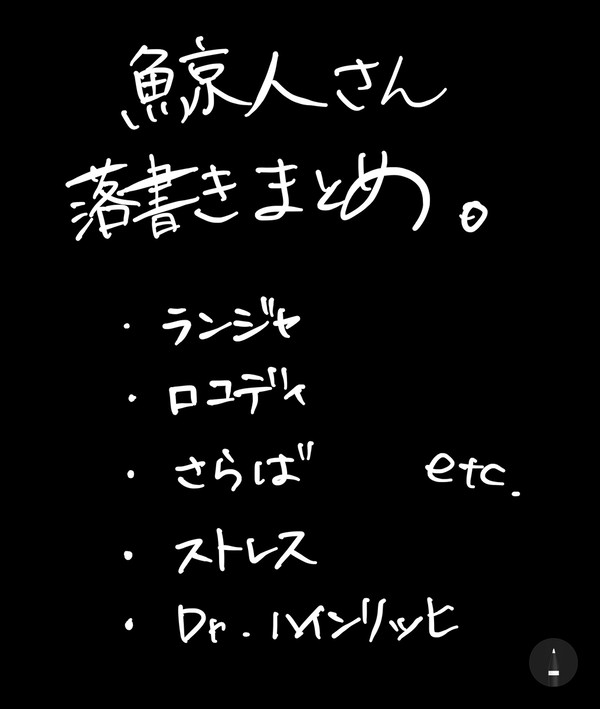 鯨人さん
落書きまとめ。
・ランジャ
・ロコディ
・さらば etc.
・ストレス
・Dr.ハインリッヒ